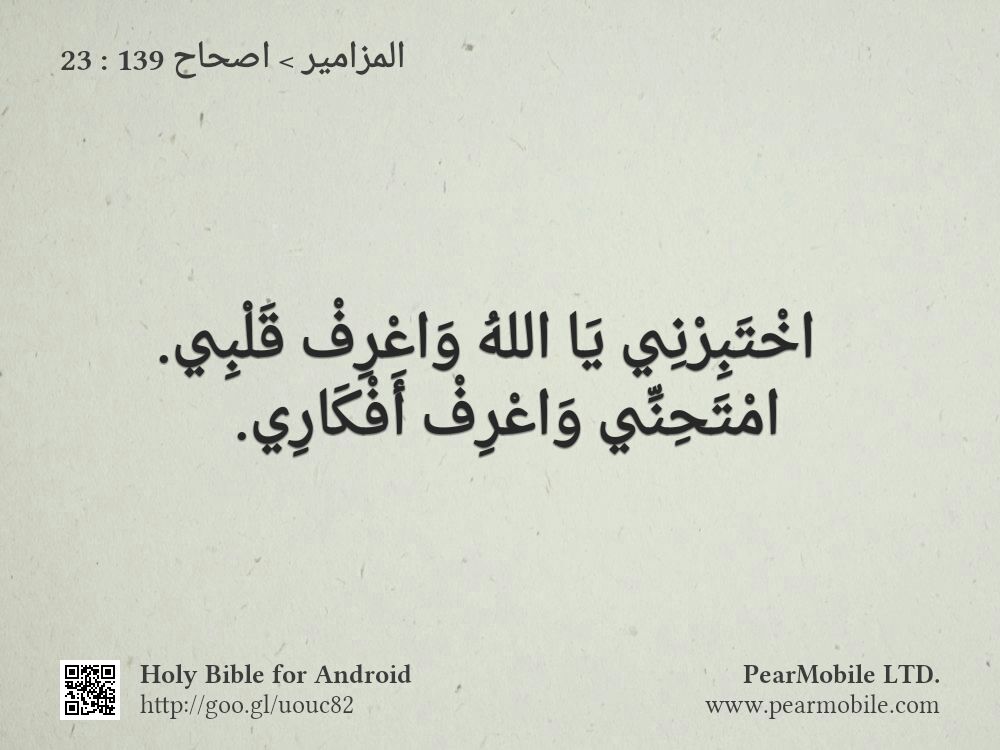 المزامير > اصحاح 139 : 23
اخْتَبِرْنِي يَا اللهُ وَاعْرِفْ قَلْبِي.
امْتَحِنِّي وَاعْرِفْ أَفْكَارِي.
Holy Bible for Android
http://goo.gl/uouc82
PearMobile LTD.
www.pearmobile.com